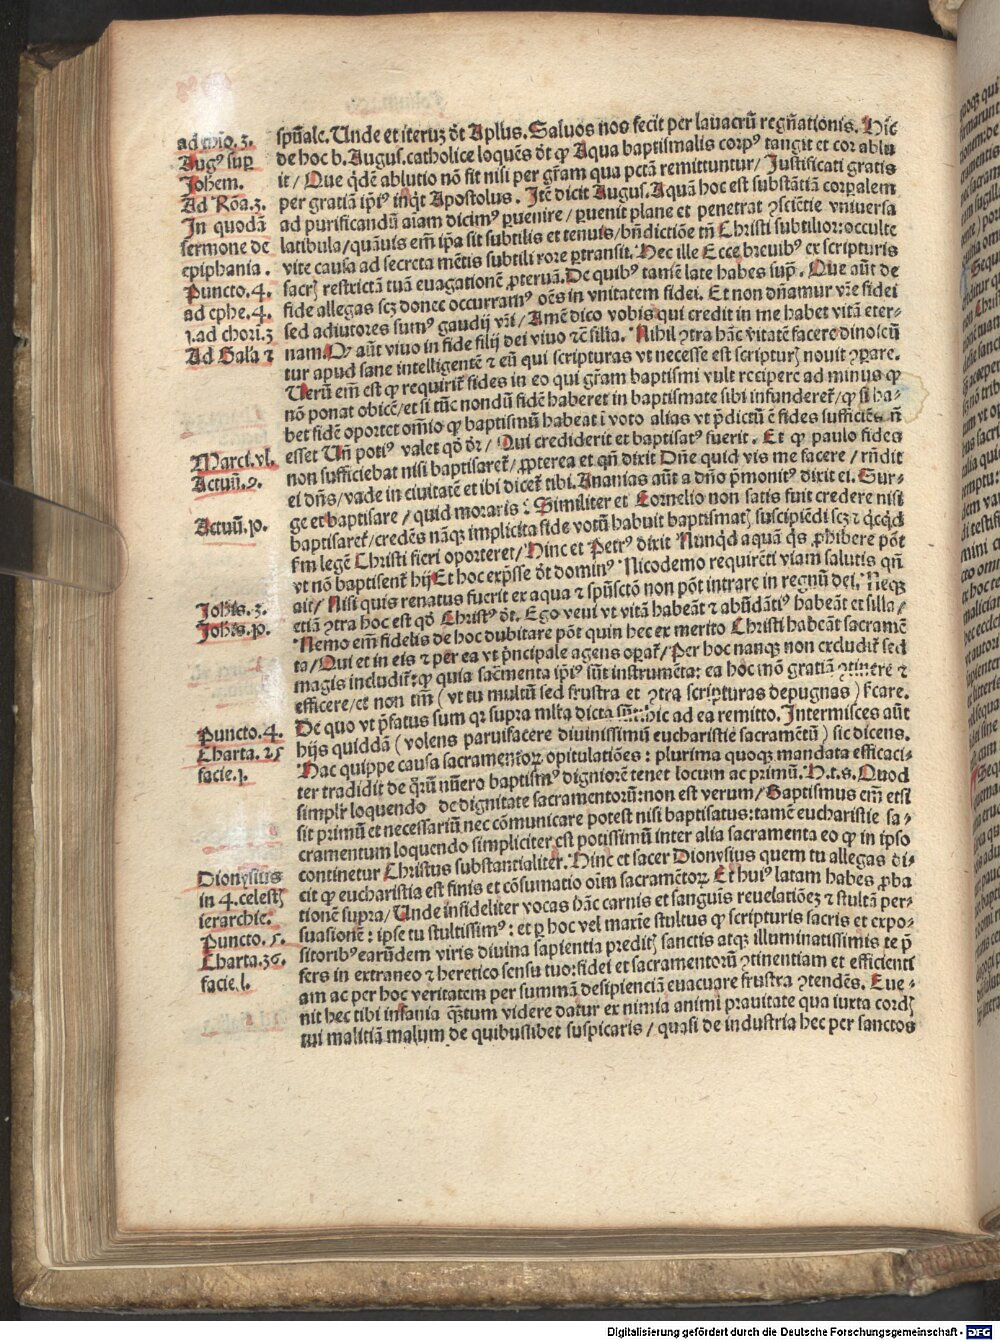 ad thio. 3.
Augꝰ suꝑ
Johem.
Ad Rõa. 3.
In quodã
sermone de
epiphania.
Puncto. 4.
ad ephe. 4.
1. ad chori. 3
Ad Gala 2
Marci. vl.
Actuũ. 9.
Actuũ. 10.
Johis. 3.
Johis. 10.
Puncto. 4.
Charta. 25
facie. 1.
Dionysius
in 4. celestꝭ
ierarchie.
Puncto. 5.
Charta. 36.
facie. 1.
spũale. Unde et iteruȝ dt̃ Aplus. Saluos nos fecit per lauacrũ regñationis. Hic
de hoc b. Augus. catholice loquẽs dt̃ ꝙ Aqua baptismalis corpꝰ tangit et cor ablu
it / Que qͥdẽ ablutio nõ fit nisi per gr̃am qua pctã remittuntur / Justificati gratis
per gratiã ip̃iꝰ inqͥt Apostolus. Itẽ dicit Augus. Aquã hoc est substãtiã corꝑalem
ad purificandũ aĩam dicimꝰ ꝑuenire / ꝑuenit plane et penetrat ꝯsciẽtie vniuersa
latibula / quãuis em̃ ip̃a sit subtilis et tenuis / bñdictiõe tñ Christi subtilior: occulte
vite causa ad secreta mẽtis subtili rore ꝑtransit. Hec ille Ecce breuibꝰ ex scripturis
sacrꝭ restrictã tuã euagationẽ ꝓteruã. De quibꝰ tamẽ late habes supͣ. Que aũt de
fide allegas scȝ donec occurramꝰ oẽs in vnitatem fidei. Et non dñamur vr̃e fidei
sed adiutores sumꝰ gaudij vr̃i / Amẽ dico vobis qui credit in me habet vitã eter⸗
nam. Qꝛ aũt viuo in fide filij dei viuo ⁊c̃ silla. Nihil ꝯtra hãc vitatẽ facere dinoscũ
tur apud sane intelligentẽ ⁊ eũ qui scripturas vt necesse est scripturꝭ nouit ꝯꝑare.
Uerũ em̃ est ꝙ requirit̃ fides in eo qui gr̃am baptismi vult recipere ad minus ꝙ
nõ ponat obicẽ / et si tũc nondũ fidẽ haberet in baptismate sibi infunderet̃ / ꝙ si ha⸗
bet fidẽ oportet om̃io ꝙ baptismũ habeat ĩ voto alias vt p̃dictũ ẽ fides sufficiẽs ñ
esset Uñ potiꝰ valet qð dr̃ / Qui crediderit et baptisatꝰ fuerit. Et ꝙ paulo fides
non sufficiebat nisi baptisaret̃ / ꝓpterea et qñ dixit Dñe quid vis me facere / rñdit
ei dñs / vade in ciuitatẽ et ibi dicet̃ tibi. Ananias aũt a dño p̃monitꝰ dixit ei. Sur⸗
ge et baptisare / quid moraris: Similiter et Cornelio non satis fuit credere nisi
baptisaret̃ / credẽs nãqȝ implicita fide votũ habuit baptismatꝭ suscipiẽdi scȝ ⁊ qͥcqͥd
fm legẽ Christi fieri oporteret / Hinc et Petrꝰ dixit Nunqͥd aquã qͥs ꝓhibere põt
vt nõ baptisent̃ hij Et hoc exp̃sse dt̃ dominꝰ Nicodemo requirẽti viam salutis qñ
ait / Nisi quis renatus fuerit ex aqua ⁊ spũscto non põt intrare in regnũ dei. Neqȝ
etiã ꝯtra hoc est qð Christꝰ dt̃. Ego veni vt vitã habeãt ⁊ abũdãtiꝰ habeãt et silla /
Nemo em̃ fidelis de hoc dubitare põt quin hec ex merito Christi habeãt sacramẽ
ta / Qui et in eis ⁊ per ea vt p̃ncipale agens oꝑat̃ / Per hoc nanqȝ non excludit̃ sed
magis includit̃: ꝙ quia sacr̃menta ip̃iꝰ sũt instrumẽta: ea hoc mõ gratiã ꝯtinere ⁊
efficere / et non tm̃ (vt tu multũ sed frustra et ꝯtra scripturas depugnas) fꝛcare.
De quo vt p̃fatus sum qꝛ supra ml̃ta dicta sũt: hic ad ea remitto. Intermisces aũt
hijs quiddã (volens paruifacere diuinissimũ eucharistie sacramẽtũ) sic dicens.
Hac quippe causa sacramentoꝝ opitulatiões: plurima quoqȝ mandata efficaci⸗
ter tradidit de qͦrũ nũero baptismꝰ digniorẽ tenet locum ac primũ. H. t. s. Quod
simplr̃ loquendo de dignitate sacramentorũ: non est verum / Baptismus em̃ etsi
sit primũ et necessariũ nec cõmunicare potest nisi baptisatus: tamẽ eucharistie sa⸗
cramentum loquendo simpliciter est potissimũ inter alia sacramenta eo ꝙ in ipso
continetur Christus substantialiter. Hinc et sacer Dionysius quem tu allegas di⸗
cit ꝙ eucharistia est finis et cõsumatio oĩm sacramẽtoꝝ Et huiꝰ latam habes ꝓba
tionẽ supra / Unde infideliter vocas hãc carnis et sanguĩs reuelatiõeȝ ⁊ stultã per⸗
suasionẽ: ipse tu stultissimꝰ: et ꝑ hoc vel maxĩe stultus ꝙ scripturis sacris et expo⸗
sitoribꝰ earũdem viris diuina sapientia preditꝭ sanctis atqȝ illuminatissimis te p̃
fers in extraneo ⁊ heretico sensu tuo: fidei et sacramentorũ ꝯtinentiam et efficienti
am ac per hoc veritatem per summã desipienciã euacuare frustra ꝯtendẽs. Eue⸗
nit hec tibi insania qͣꝫtum videre datur ex nimia animi prauitate qua iuxta cordꝭ
tui malitiã malum de quibuslibet suspicaris / quasi de industria hec per sanctos
Digitalisierung gefördert durch die Deutsche Forschungsgemeinschaft - DFG